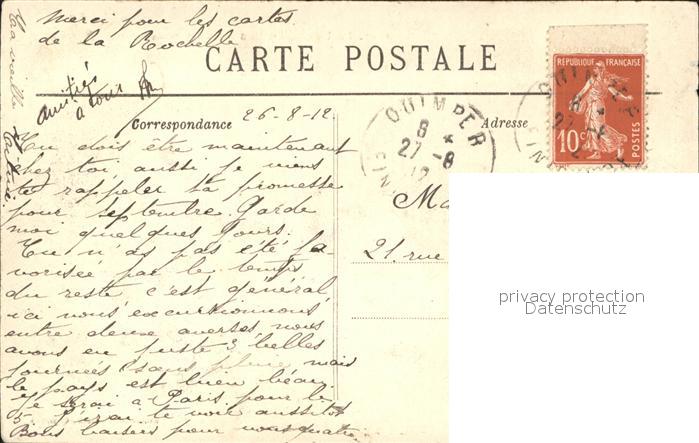 Merci pour les cartes
de la Rochelle
CARTE POSTALE
amitiés
à tous
Ta vieille
Correspondance
26-8-12.
Adresse
REPUBLIQUE FRANÇAISE
10c
POSTES
QUIMPER
8
27-8
12
FINISTERE
Tu dois être maintenant
chez toi aussi je viens
te rappeler ta promesse
pour septembre. Garde
moi quelques jours.
Tu n'as pas été fa
vorisée par le temps
du reste c'est général
ici nous excursionnons
entre deux averses nous
avons eu juste 3 belles
journées sans pluie mais
le pays est bien beau.
Je serai à Paris pour le
5. J'irai te voir aussitôt
Bons baisers pour vous quatre
Ma
21. rue
privacy protection
Datenschutz